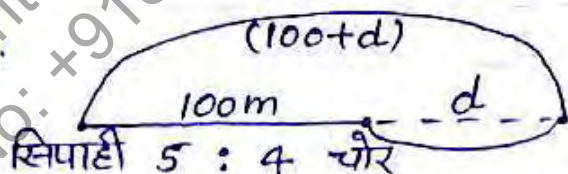 (100+d)
100m d
सिपाही 5 : 4 चोर